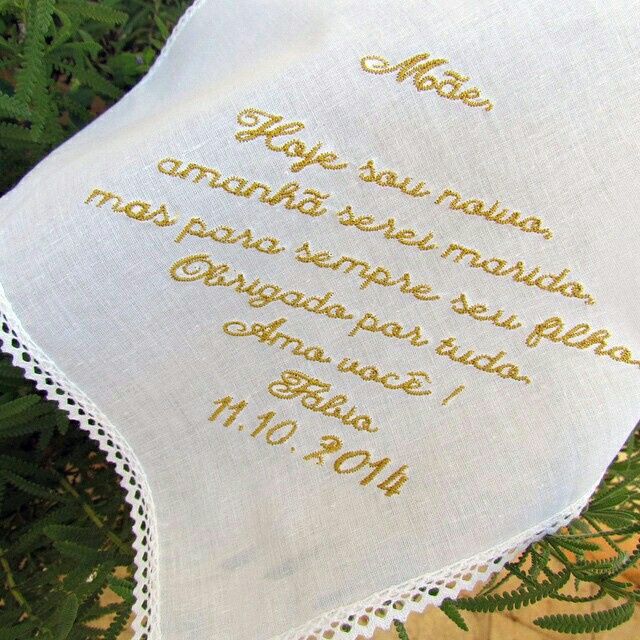 Mãe,
Hoje sou noivo,
amanhã serei marido,
mas para sempre seu filho.
Obrigado por tudo.
Amo você !
Fábio
11.10.2014